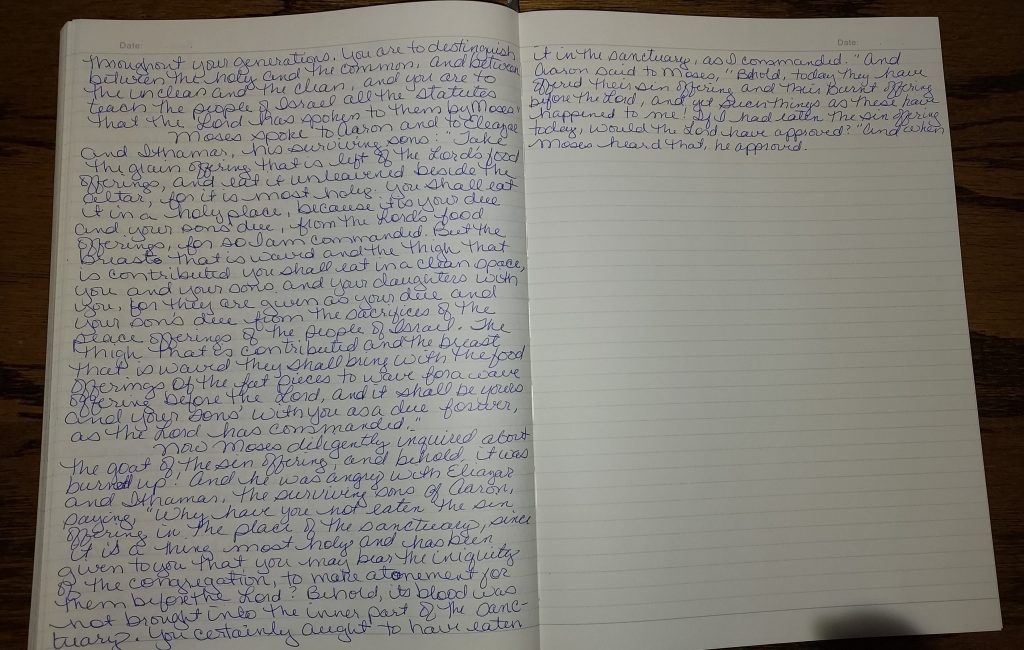 Date:
throughout your generations. You are to destinguish
between the holy and the common, and between
the unclean and the clean, and you are to
teach the people of Israel all the statutes
that the Lord has spoken to them by Moses."
Moses spoke to Aaron and to Eleazar
and Ithamar, his surviving sons: "Take
the grain offering that is left of the Lord's food
offerings, and eat it unleavened beside the
altar, for it is most holy. You shall eat
it in a holy place, because it is your due
and your sons' due, from the Lord's food
offerings, for so I am commanded. But the
breast that is waved and the thigh that
is contributed you shall eat in a clean space,
you and your sons and your daughters with
you, for they are given as your due and
your son's due from the sacrifices of the
peace offerings of the people of Israel. The
thigh that is contributed and the breast
that is waved they shall bring with the food
offerings of the fat pieces to wave for a wave
offering before the Lord, and it shall be yours
and your sons' with you as a due forever,
as the Lord has commanded."
Now Moses diligently inquired about
the goat of the sin offering, and behold, it was
burned up! And he was angry with Eliazar
and Ithamar, the surviving sons of Aaron,
saying, "Why have you not eaten the sin
offering in the place of the sanctuary, since
it is a thing most holy and has been
given to you that you may bear the iniquity
of the congregation, to make atonement for
them before the Lord? Behold, its blood was
not brought into the inner part of the sanc-
tuary. You certainly aught to have eaten
Date:
it in the sanctuary, as I commanded." And
Aaron said to Moses, "Behold, today they have
offered their sin offering and their burnt offering
before the Lord, and yet such things as these have
happened to me! If I had eaten the sin offering
today, would the Lord have approved?" And when
Moses heard that, he approved.